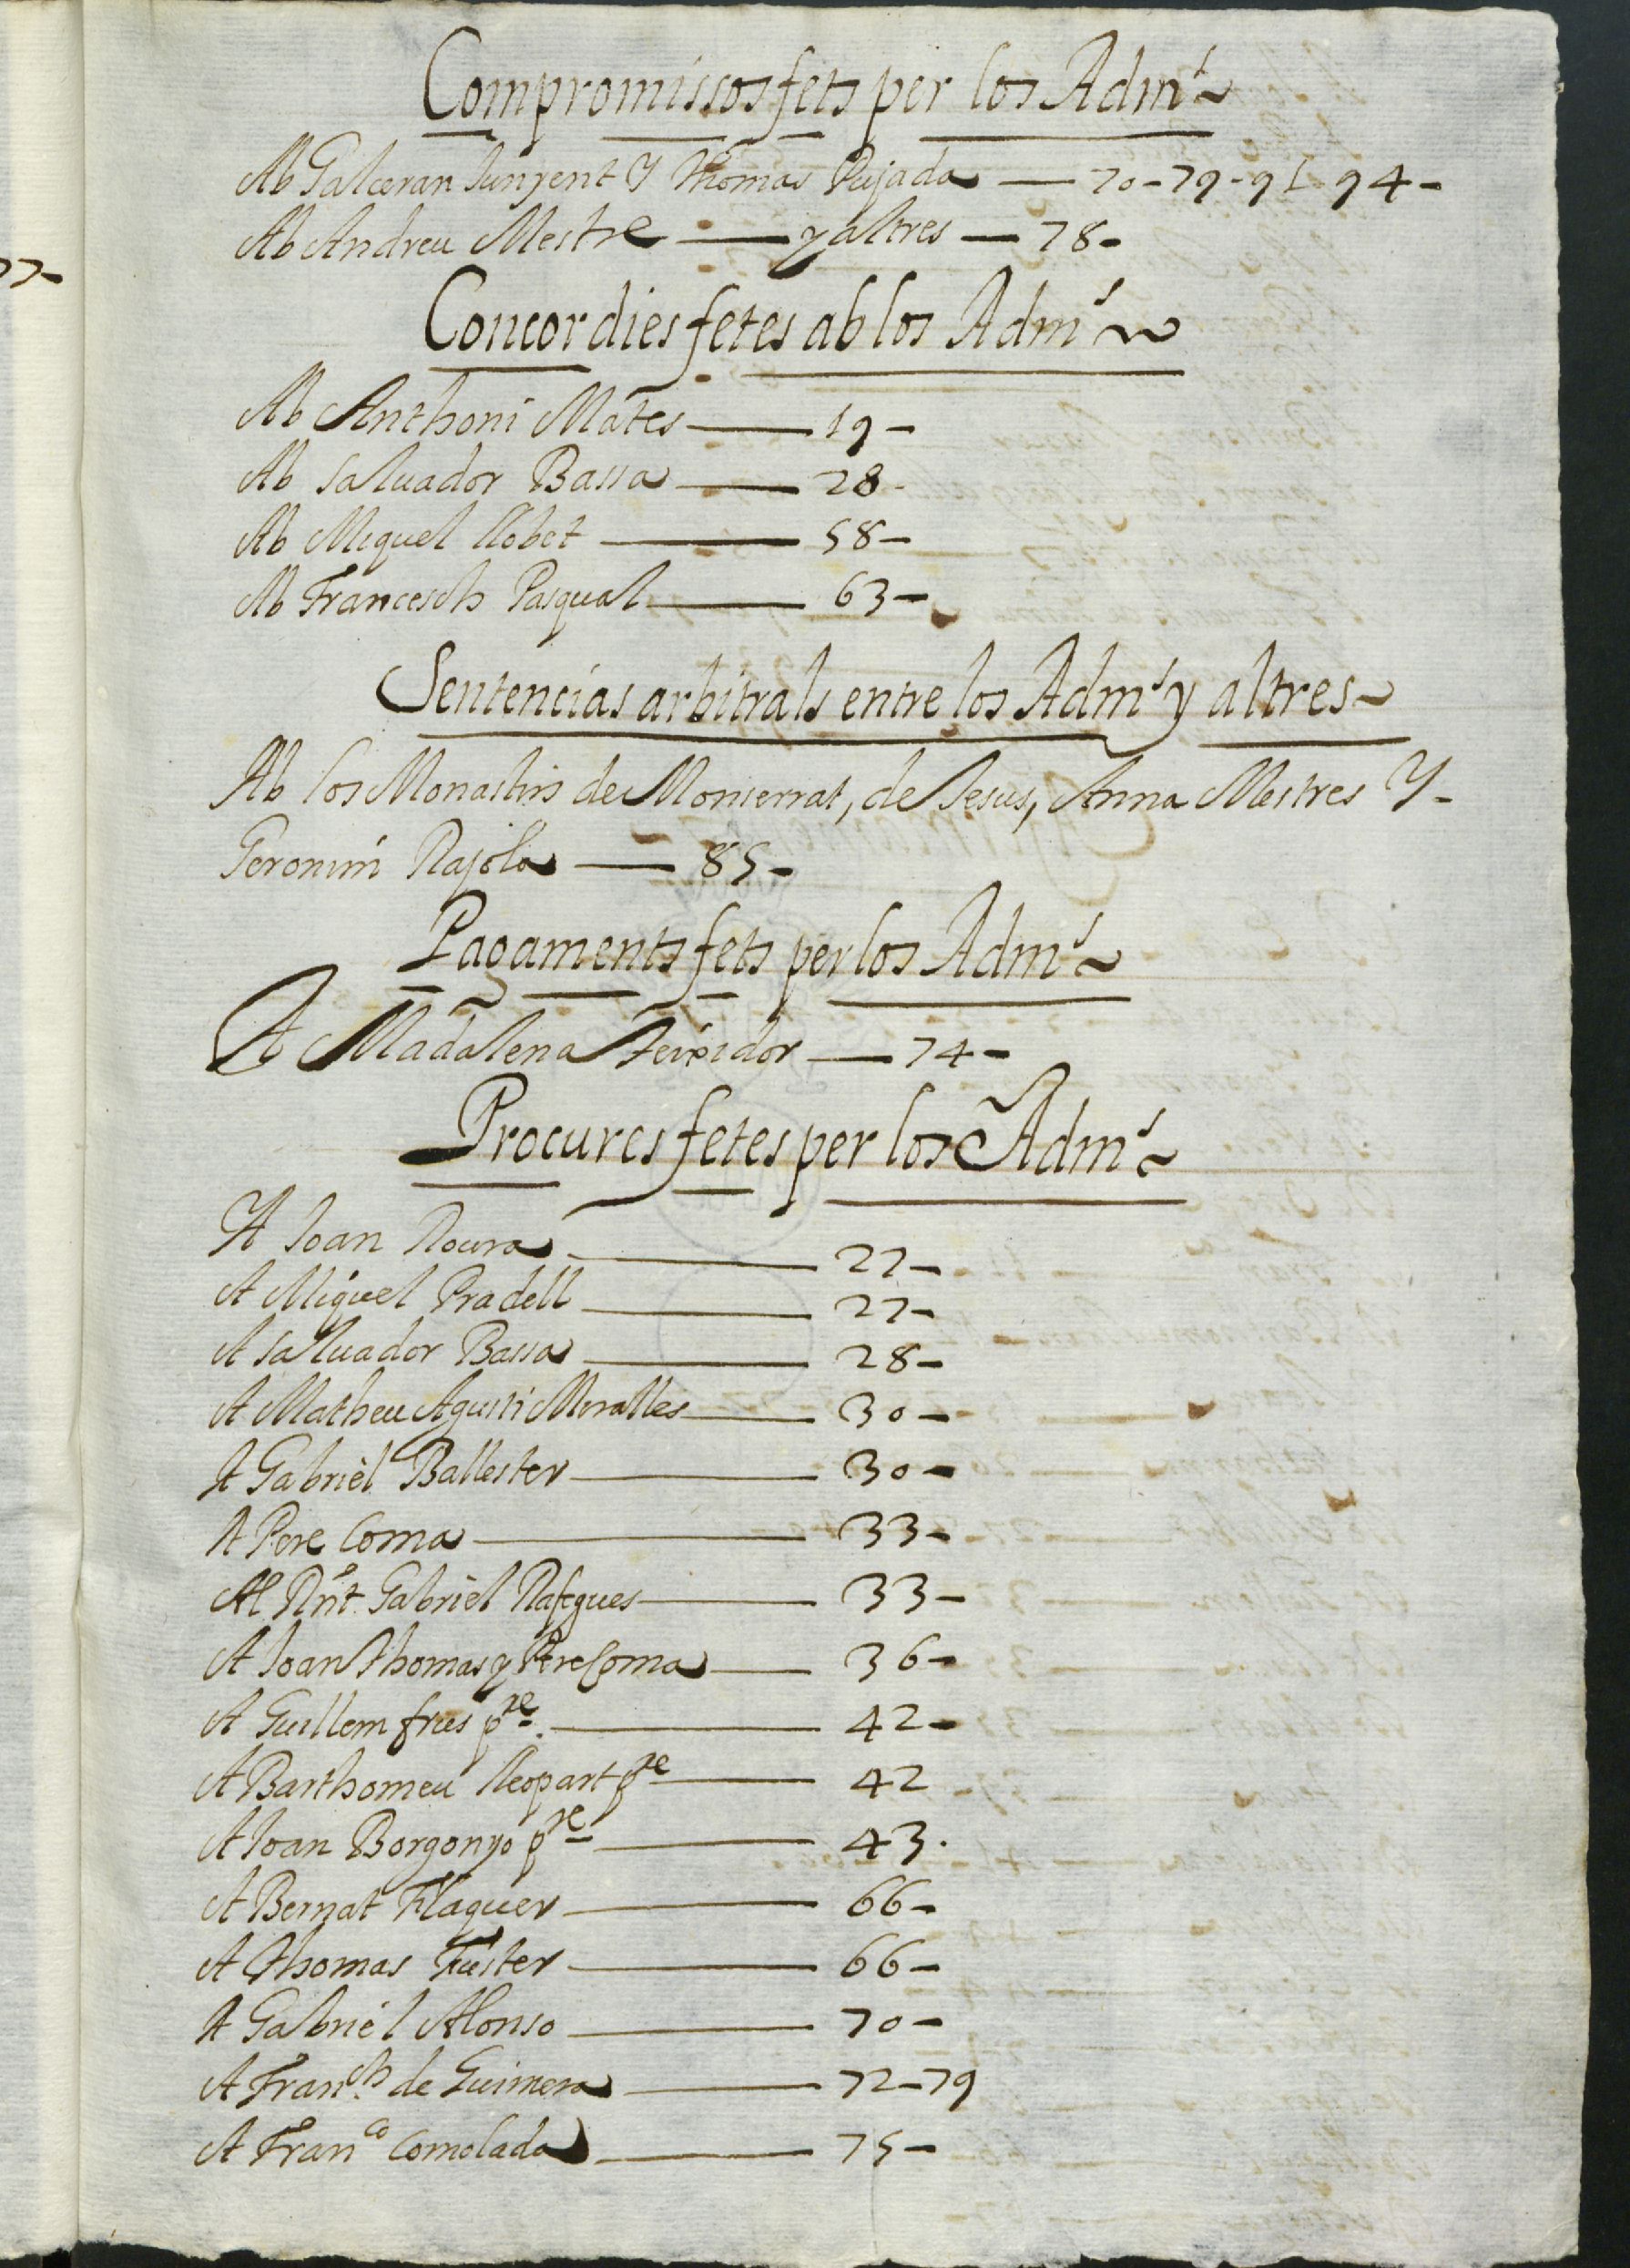 Compromissos fets per los Adm.s
Ab Galceran Junyent Y Thomas Pujada — 70-79-91-94-
Ab Andreu Mestre — y altres — 78-
77-
Concordies fetes ab los Adm.s
Ab Anthoni Mates — 19-
Ab Saluador Bassa — 28-
Ab Miquel llobet — 58-
Ab Francesch Pasqual — 63-
Sentencias arbitrals entre los Adm.s y altres
Ab los Monastirs de Monserrat, de Jesus, Anna Mestres Y-
Geronim Rajola — 85-
Pagaments fets per los Adm.s
A Madalena Teixidor — 74-
Procures fetes per los Adm.s
A Joan Roura — 27-
A Miquel Pradell — 27-
A Saluador Bassa — 28-
A Matheu Agusti Miralles — 30-
A Gabriel Ballester — 30-
A Pere Coma — 33-
Al Rnt. Gabriel Rafegues — 33-
A Joan Thomas y Pere Coma — 36-
A Guillem fries pre. — 42-
A Barthomeu lleopart pre — 42
A Joan Borgonyo pre — 43.
A Bernat Flaquer — 66-
A Thomas Fuster — 66-
A Gabriel Alonso — 70-
A Fran.ch de Guimera — 72-79
A Fran.co Comolada — 75-